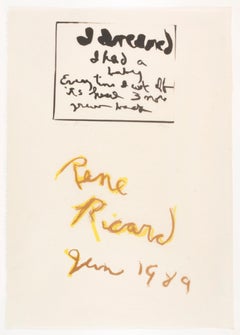 I dreamed
I had a
baby
Every time I cut off
its head 3 more
grew back
Rene
Ricard
Jun 1989